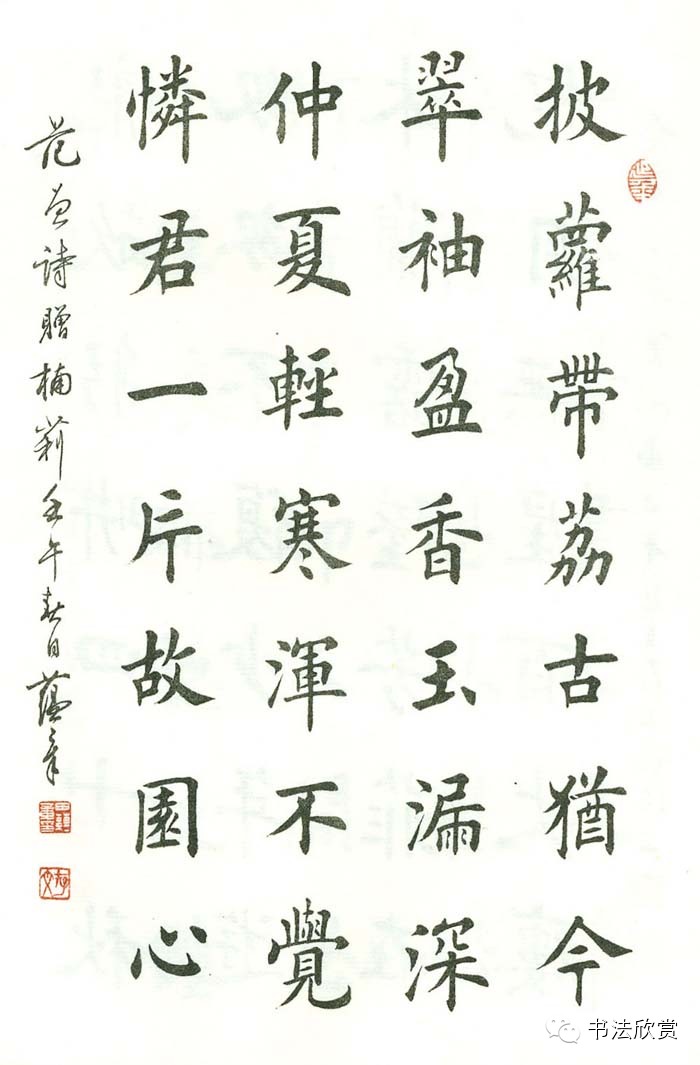 披蘿帶荔古猶今
翠袖盈香玉漏深
仲夏輕寒渾不覺
憐君一片故園心
范曾詩贈楠莉壬午春日蘊章
书法欣赏